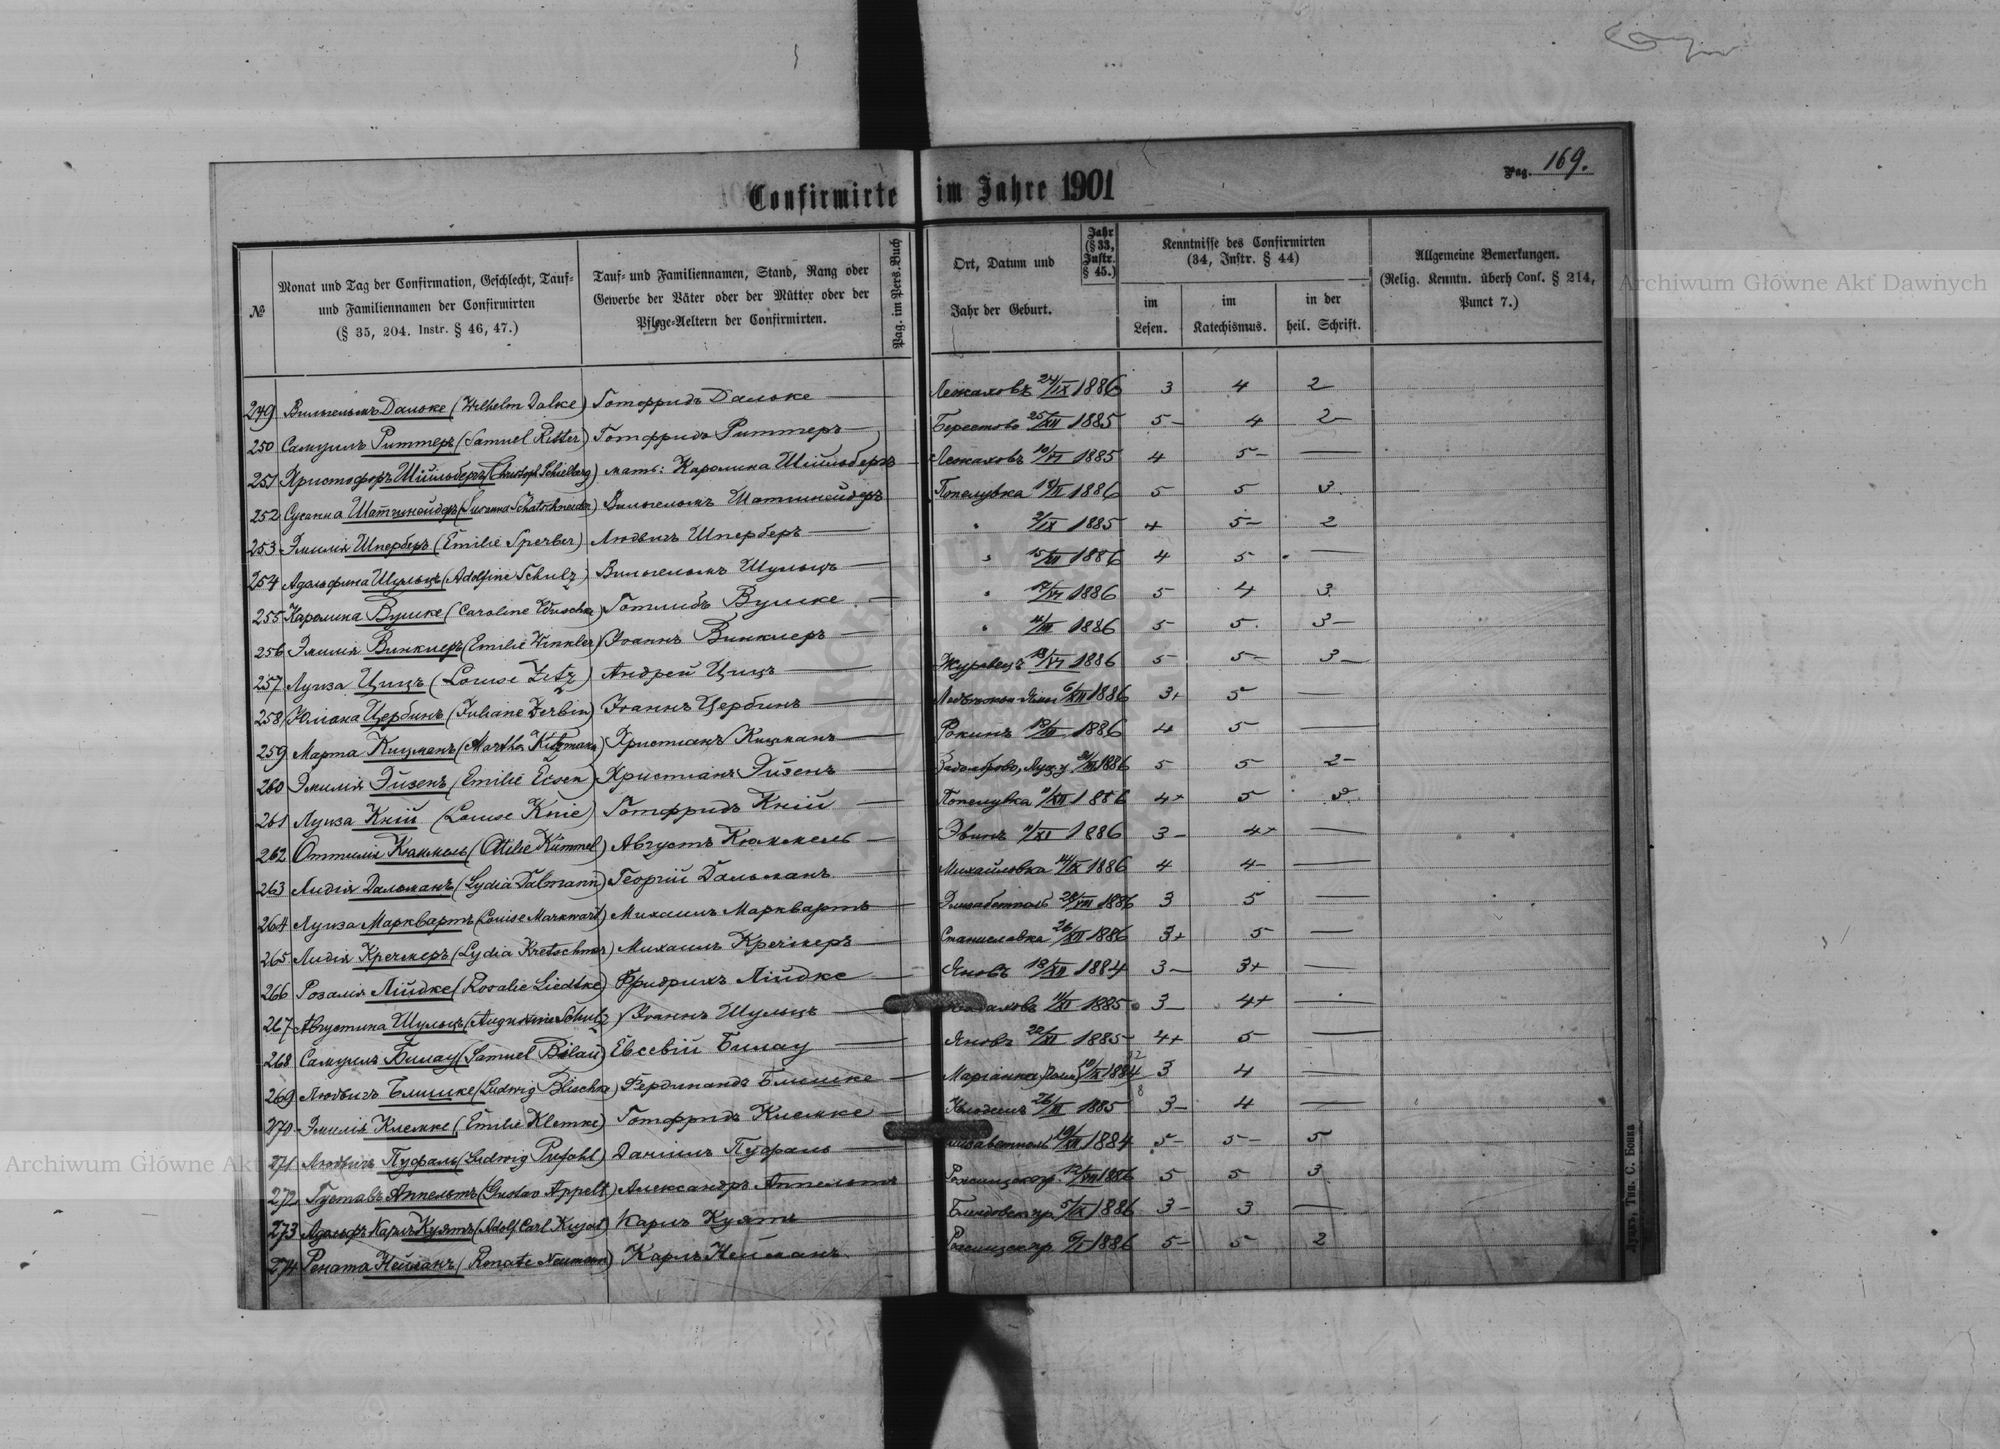 Pag. 169.
Confirmirte im Jahre 1901
№
Monat und Tag der Confirmation, Geschlecht, Tauf-
und Familiennamen der Confirmirten
(§ 35, 204. Instr. § 46, 47.)
Tauf- und Familiennamen, Stand, Rang oder
Gewerbe der Väter oder der Mütter oder der
Pflege-Aeltern der Confirmirten.
Pag. im Pers.Buch
Ort, Datum und
Jahr der Geburt.
Jahr
(§ 33,
Instr.
§ 45.)
Kenntnisse des Confirmirten
(34, Instr. § 44)
im
Lesen.
im
Katechismus.
in der
heil. Schrift.
Allgemeine Bemerkungen.
(Relig. Kenntn. überh Conf. § 214,
Punct 7.)
249 Вильгельмъ Дальке (Wilhelm Dalke) Готфридъ Дальке 24/IX 1886 3 4 2
250 Самуилъ Риттеръ (Samuel Ritter) Готфридъ Риттеръ 25/XII 1885 5- 4 2-
251 Христофоръ Шильбергъ (Christoph Schielberg) мать: Каролина 1885 4 5- —
252 Сусанна Шатшнейдеръ (Susanna Schatschneider) Вильгельмъ Шатшнейдеръ Попелувка 1886 5 5 3
253 Эмилія Шперберъ (Emilie Sperber) Людвигъ Шперберъ " 2/IX 1885 4 5- 2
254 Адольфина Шульцъ (Adolfine Schulz) Вильгельмъ Шульцъ " 1886 4 5 —
255 Каролина Вушке (Caroline Wuschke) Готлибъ Вушке " 1886 5 4 3
256 Эмилія Винклеръ (Emilie Winkler) Іоаннъ Винклеръ " 1886 5 5 3-
257 Луиза Цицъ (Louise Zitz) Андрей Цицъ Журавецъ 1886 5 5- 3-
258 Юліана Цербинъ (Juliane Zerbin) Іоаннъ Цербинъ 1886 3+ 5 —
259 Марта Кицманъ (Martha Kitzmann) Христіанъ Кицманъ Рокинъ 1886 4 5 —
260 Эмилія Эйзенъ (Emilie Eisen) Христіанъ Эйзенъ 1886 5 5 2-
261 Луиза Кній (Louise Knie) Готфридъ Кній Попелувка 1886 4+ 5 3
262 Оттилія Кюммель (Otilie Kümmel) Августъ Кюммель 11/XI 1886 3- 4+ —
263 Лидія Дальманъ (Lydia Dalmann) Георгій Дальманъ Михайловка 14/IX 1886 4 4- —
264 Луиза Марквартъ (Louise Markwart) Михаилъ Марквартъ Элизабетполь 28/VIII 1886 3 5 —
265 Лидія Кречмеръ (Lydia Kretschmer) Михаилъ Кречмеръ Станиславка 26/XII 1886 3+ 5 —
266 Розалія Лійдке (Rosalie Liedtke) Фридрихъ Лійдке Яновъ 18/XII 1884 3- 3+ —
267 Августина Шульцъ (Augustine Schulz) Іоаннъ Шульцъ 1885 3- 4+ —
268 Самуилъ Билау (Samuel Bilau) Евсевій Билау Яновъ 22/XI 1885 4+ 5 —
269 Людвигъ Блишке (Ludwig Blischke) Фердинандъ Блишке Маріанка 1884 3 4 —
270 Эмилія Клемке (Emilie Klemke) Готфридъ Клемке 1885 3- 4 —
271 Людвигъ Пуфаль (Ludwig Pufahl) Даніилъ Пуфаль 1884 5- 5- 5
272 Густавъ Аппельтъ (Gustav Appelt) Александръ Аппельтъ 1886 5 5 3
273 Адольфъ Карлъ Куятъ (Adolf Carl Kujat) Карлъ Куятъ 1886 3- 3 —
274 Рената Нейманъ (Renate Neumann) Карлъ Нейманъ 1886 5- 5 2
Тип. С. Бонка
Archiwum Główne Akt Dawnych
Archiwum Główne Akt